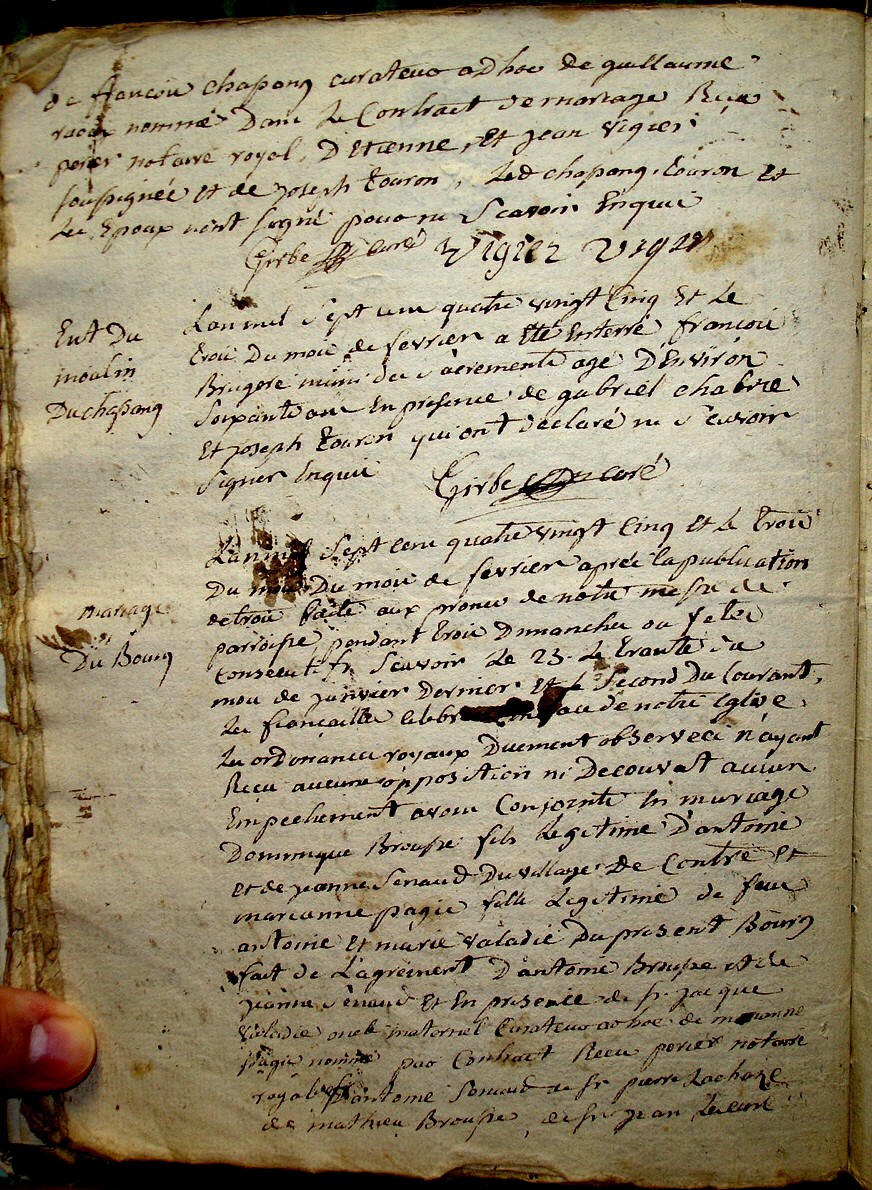 de françois chapang curateur adhoc de guillaume
nommé Dans Le Contract de mariage Recu
perier notaire royal, D'Etienne, Et jean vigier
soussignés Et de joseph touron, Led chapang, touron Et
Les Epoux n'ont signé pour ne Scavoir Enquis
Girbe curé Vigier Vigier
Ent Du
moulin
Duchapang
L'an mil Sept cens quatre vingt Cinq Et Le
trois Du mois de fevrier a Eté Enterré françois
Brugere muni des sacrements agé D'Environ
Soixante ans En presence de gabriel chabrie
Et joseph touron qui ont declaré ne Scavoir
Signer Enquis
Girbe curé
mariage
Du Bourg
L'an mil Sept cens quatre vingt Cinq Et Le trois
Du mois Du mois de fevrier aprés la publication
de trois faite aux prones de notre messe de
parroisse, pendant trois Dimanches ou fetes
Consecutifs Scavoir Le 23. Le trante du
mois de janvier Dernier Et le Second Du Courant,
Les fiançailles de notre Eglise,
Les ordonances royaux Duement observées n'ayant
Recu aucune opposition ni Decouvert aucun
Empechement avons Conjoints En mariage
Dominique Brousse fils Legitime D'antoine
et de jeanne Senaud Du village De Contre Et
marianne pagis fille Legitime de feu
antoine Et marie valadie Du present Bourg
fait de L'agrement D'antoine Brousse et de
jeanne Senaud Et En presence de sr. jacque
valadie oncle maternel Curateur adhoc de marianne
pagis nommé par Contract Recu perier notaire
royal D'antoine Senaud de sr. pierre Lachaze
de mathieu Brousse, de sr. jean